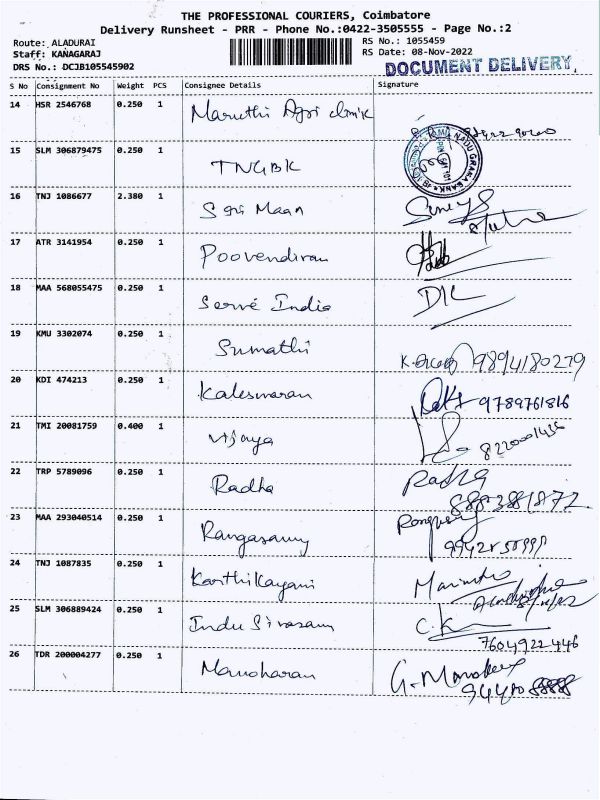 THE PROFESSIONAL COURIERS, Coimbatore
Delivery Runsheet - PRR - Phone No.:0422-3505555 - Page No.:2
Route: ALADURAI
RS No.: 1055459
Staff: KANAGARAJ
RS Date: 08-Nov-2022
DRS No.: DCJB105545902
DOCUMENT DELIVERY
S No Consignment No Weight PCS Consignee Details Signature
14 HSR 2546768 0.250 1 Maruthi Agri clinik
15 SLM 306879475 0.250 1 TNGBK
16 TNJ 1086677 2.380 1 Sri Maan
17 ATR 3141954 0.250 1 Poovendiran
18 MAA 568055475 0.250 1 Serve India
19 KMU 3302074 0.250 1 Sumathi 9894180279
20 KDI 474213 0.250 1 Kaleswaran 9789761816
21 TMI 20081759 0.400 1 Vijaya
22 TRP 5789096 0.250 1 Radha Radha
8883881872
23 MAA 293040514 0.250 1 Rangasamy
24 TNJ 1087835 0.250 1 Karthikayani
25 SLM 306889424 0.250 1 Indu Sivasam C.K
7604922446
26 TDR 200004277 0.250 1 Manoharan G. Manoharan